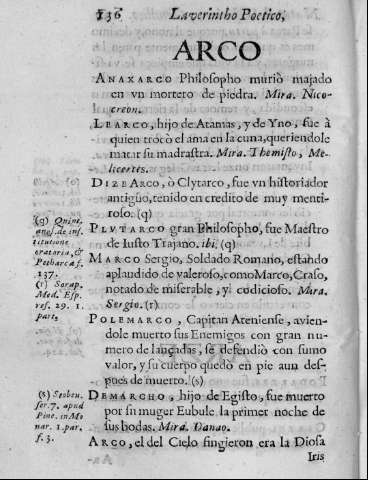 136 Laverintho Poetico,
ARCO
ANAXARCO Philosopho muriò majado
en vn mortero de piedra. Mira. Nico-
creon.
LEARCO, hijo de Atamas, y de Yno, fue à
quien trocò el ama en la cuna, queriendole
matar su madrastra. Mira. Themisto, Me-
licertes.
DIZEARCO, ò Clytarco, fue vn historiador
antigüo, tenido en credito de muy menti-
roso. (q)
PLVTARCO gran Philosopho, fue Maestro
de Iusto Trajano. ibi. (q)
MARCO Sergio, Soldado Romano, estando
aplaudido de valeroso, como Marco, Craso,
notado de miserable, y codicioso. Mira.
Sergio. (r)
POLEMARCO, Capitan Ateniense, avien-
dole muerto sus Enemigos con gran nu-
mero de lançadas, se defendiò con sumo
valor, y su cuerpo quedò en pie aun des-
pues de muerto. (s)
DEMARCHO, hijo de Egisto, fue muerto
por su muger Eubule la primer noche de
sus bodas. Mira. Danao.
ARCO, el del Cielo fingieron era la Diosa
Iris
(q) Quint.
de ins-
titutione
oratoria, &
Petharcæ f.
137.
(r) Sorap.
Med. Esp.
ref. 29. 1.
part.
(s) Stobeu.
ser. 7. apud
Pine. in Mo
nar. 1. par.
f. 3.